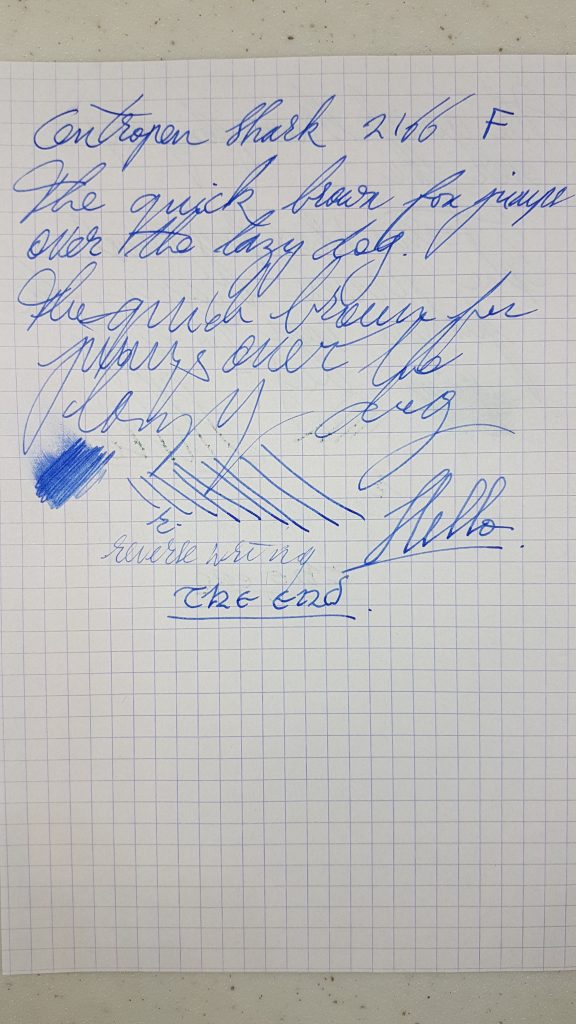 Centropen Shark 2166 F
The quick brown fox jumps
over the lazy dog.
The quick brown fox
jumps over the
lazy dog
Hello.
r.
reverse writing
THE END.